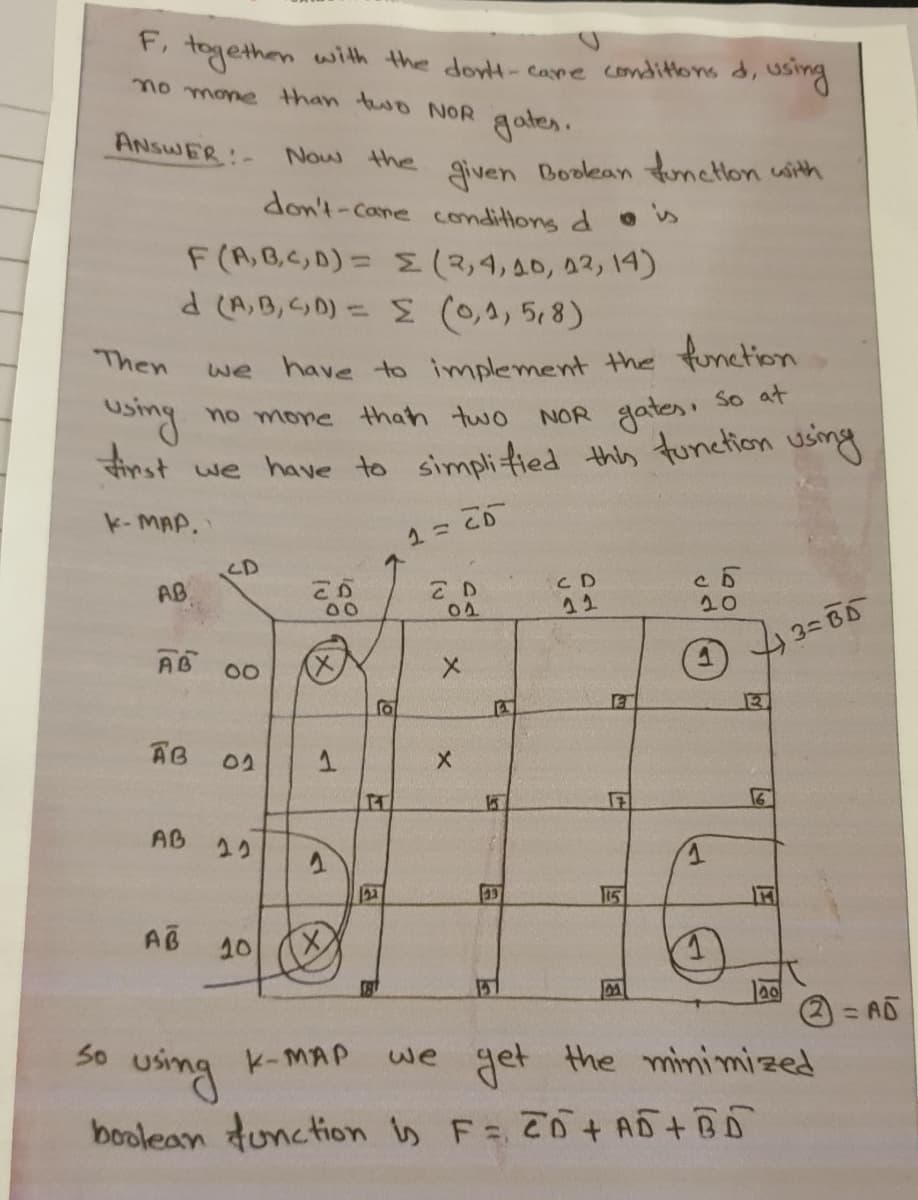 F, together with the don't-care conditions d, using
no more than two NOR gates.
ANSWER:- Now the given Boolean function with
don't-care conditions d is
F (A,B,C,D) = Σ (2,4,10,12,14)
d (A,B,C,D) = Σ (0,1,5,8)
Then we have to implement the function
using no more than two NOR gates. So at
first we have to simplified this function using
K-MAP.
1 = C̅D̅
AB CD C̅D̅ 00 C̅D 01 CD 11 CD̅ 10
3 = B̅D̅
A̅B̅ 00 X X 1
0 1 3 2
A̅B 01 1 X
4 5 7 6
AB 11 1 1
12 13 15 14
AB̅ 10 X 1
8 9 11 10
2 = AD̅
So using K-MAP we get the minimized
boolean function is F = C̅D̅ + AD̅ + B̅D̅